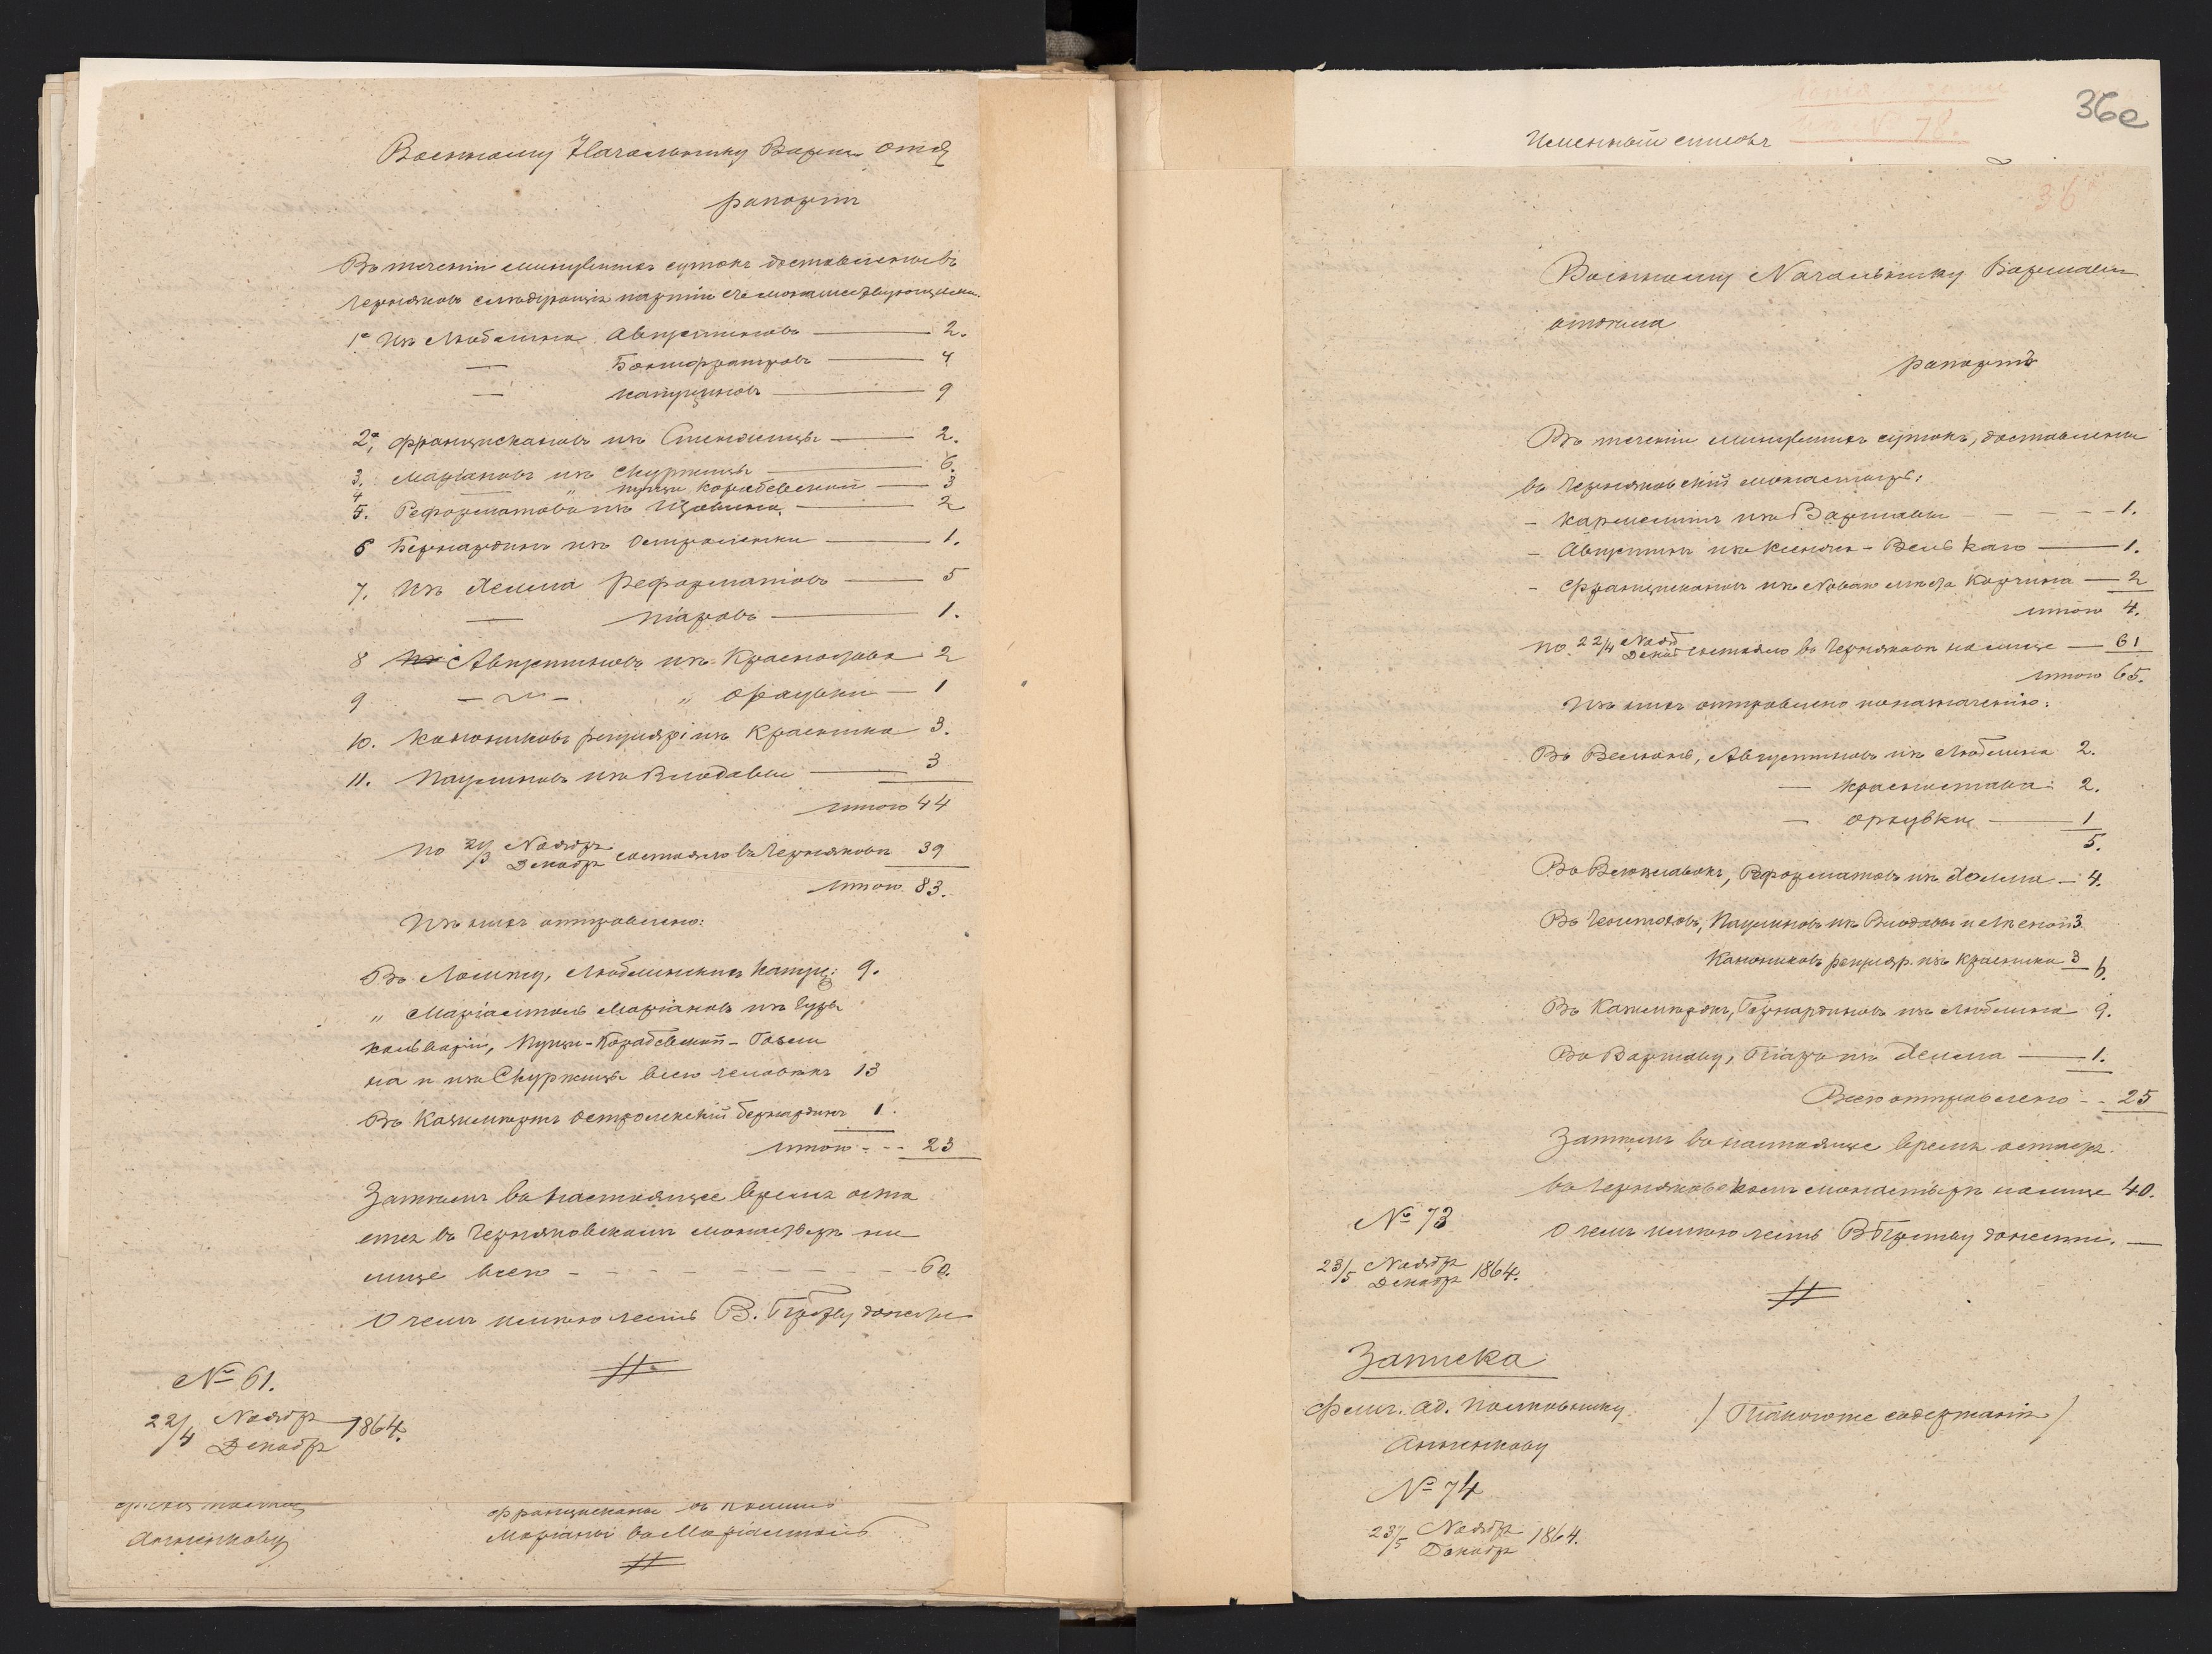 Военному Начальнику Варш. Отд.
рапортъ
Въ теченіи минувшихъ сутокъ доставлены въ
Черняковъ слѣдующія партіи съ монашествующими.
1е Изъ Люблина Августиновъ — 2.
— Бонифратровъ — 4
— капуциновъ — 9
2е, францискановъ изъ Стенжицы — 2.
3. Маріановъ изъ Скуржеца — 6.
4 — " пущи Корабевской — 3
5. Реформатовъ изъ — 2
6 Бернардинъ изъ Остроленки — 1.
7. Изъ Хелма Реформатовъ — 5
— піаровъ — 1.
8 Августиновъ изъ Красностава 2
9 — " — " Орхувки — 1
10. Канониковъ регуляр. изъ Красника 3.
11. Паулиновъ изъ Влодавы — 3
итого 44
по 21/3 Ноябр Декабр состояло въ Черняковѣ 39
итого 83.
Изъ нихъ отправлено:
Въ Ломжу, Люблинскихъ Капуц: 9.
" Маріамполь Маріановъ изъ Гуры
кальваріи, Пущи-Корабевской-Гозли
на и изъ Скуржеца всего человѣкъ 13
Въ Казимиржъ Остроленскій бернардинъ 1.
итого - - - 23
Затѣмъ въ настоящее время оста
ется въ Черняковскомъ монастырѣ на
лице всего - - - - - - - - 60.
О чемъ имѣю честь В. Пр-ву донести
№ 61.
22/4 Ноябр Декабр 1864.
Анненкову
францисканы въ
Маріаны въ Маріамполь
36е
Именный списокъ
№ 78.
36
Военному Начальнику Варшавск
отдѣла
рапортъ
Въ теченіи минувшихъ сутокъ, доставлены
въ Черняковскій монастырь:
- Кармелитъ изъ Варшавы - - - - - 1.
- Августинъ изъ Ксенжа-Велькаго — 1.
- Францискановъ изъ Новаго мѣста Корчина — 2
итого 4.
По 22/4 Нояб Декаб состояло въ Черняковѣ на лице — 61
итого 65.
Изъ нихъ отправлено по назначенію:
Въ Велюнь, Августиновъ изъ Люблина 2.
— Красностава 2.
— Орхувки — 1
5.
Во Влоцлавокъ, Реформатовъ изъ Хелма — 4.
Въ Ченстоховъ, Паулиновъ изъ Влодавы 3
Канониковъ регуляр. изъ Красника 3 6.
Въ Казимиржъ, Бернардиновъ изъ Люблина 9.
Въ Варшаву, Піаръ изъ Хелма — 1.
Всего отправлено - - 25
Затѣмъ въ настоящее время остаетъ.
въ Черняковскомъ монастырѣ на лице 40.
О чемъ имѣю честь В Пр-ству донести. —
№ 73
23/5 Ноябр Декабр 1864.
Записка
Флиг. Ад. Полковнику / Такогоже содержанія /
Анненкову
№ 74
23/5 Ноябр Декабр 1864.